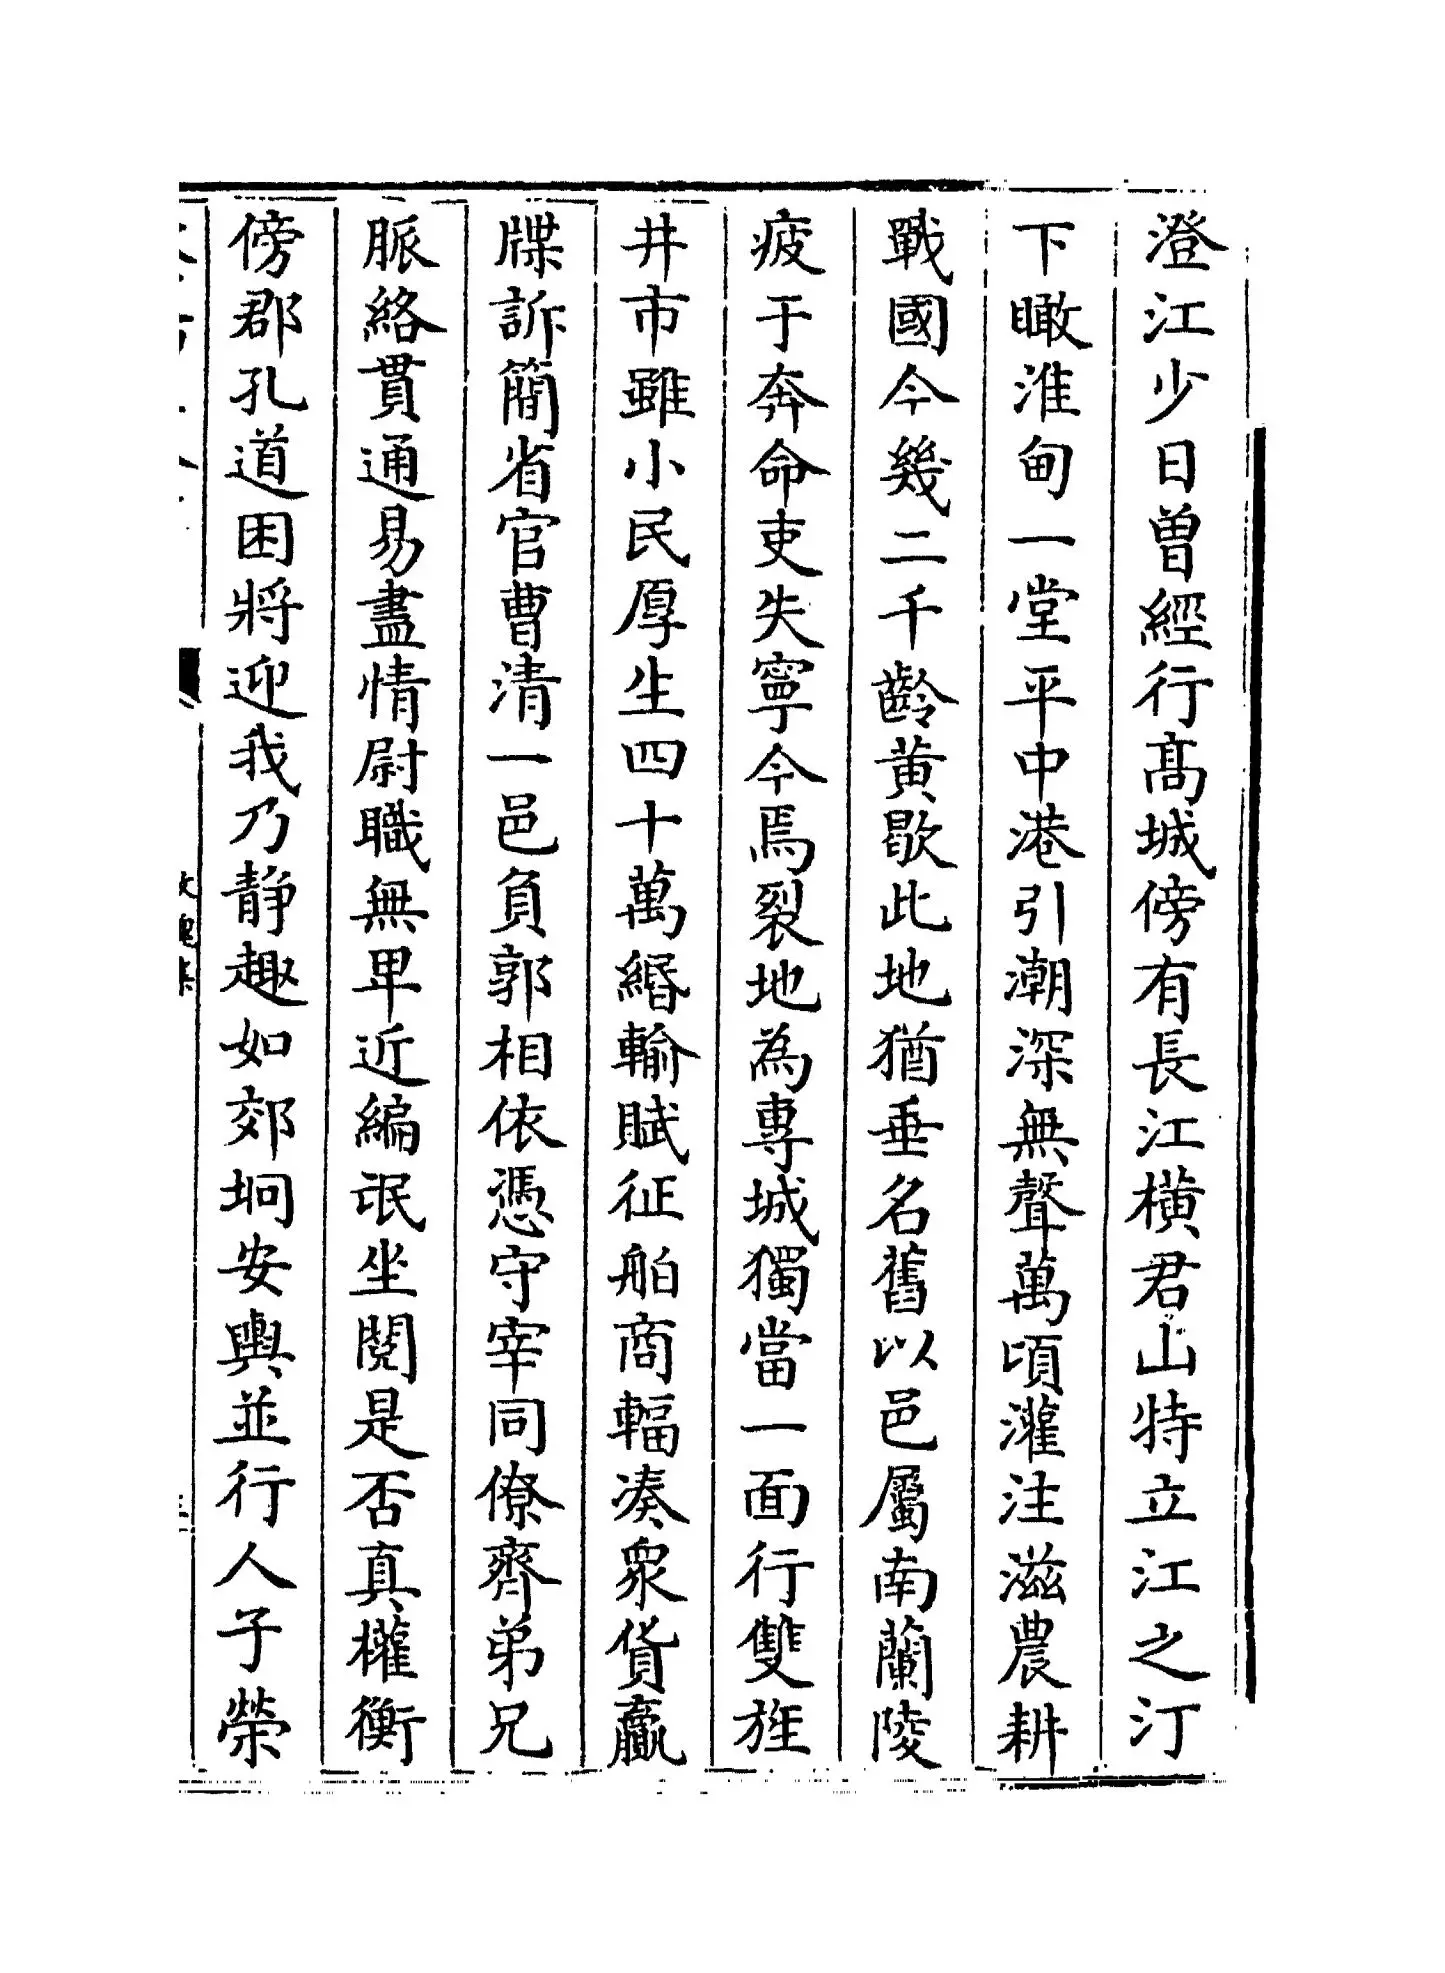 澄江少日曾經行髙城傍有長江橫君山特立江之汀
下瞰淮甸一堂平中港引潮深無聲萬頃灌注滋農耕
戰國今幾二千齡黃歇此地猶垂名舊以邑屬南蘭陵
疲于奔命吏失寧今焉裂地為專城獨當一面行雙旌
井市雖小民厚生四十萬緡輸賦征舶商輻湊衆貨贏
牒訴簡省官曹清一邑負郭相依憑守宰同僚齊弟兄
脈絡貫通易盡情尉職無卑近編氓坐閱是否真權衡
傍郡孔道困將迎我乃靜趣如郊坰安輿並行人子榮
攻媿集